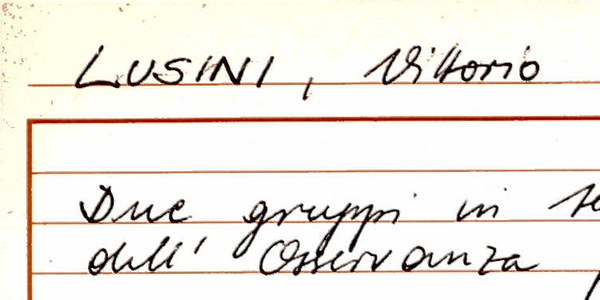 LUSINI, Vittorio
Due gruppi in
dell' Osservanza